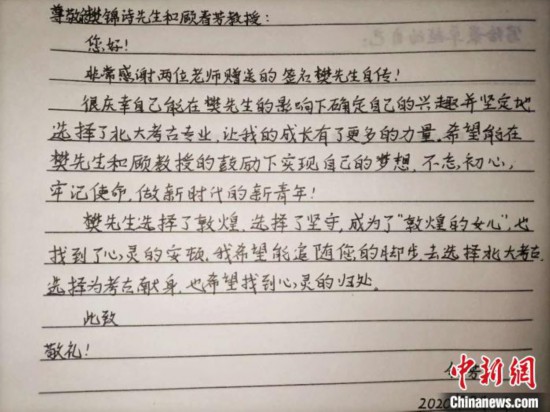 尊敬的樊锦诗先生和顾春芳教授：
您好！
非常感谢两位老师赠送的签名樊先生自传！
很庆幸自己能在樊先生的影响下确定自己的兴趣并坚定地
选择了北大考古专业，让我的成长有了更多的力量。希望能在
樊先生和顾教授的鼓励下实现自己的梦想，不忘初心，
牢记使命，做新时代的新青年！
樊先生选择了敦煌，选择了坚守，成为了“敦煌的女儿”，也
找到了心灵的安顿。我希望能追随您的脚步去选择北大考古，
选择为考古献身，也希望找到心灵的归处。
此致
敬礼！
中新网
Chinanews.com
2020